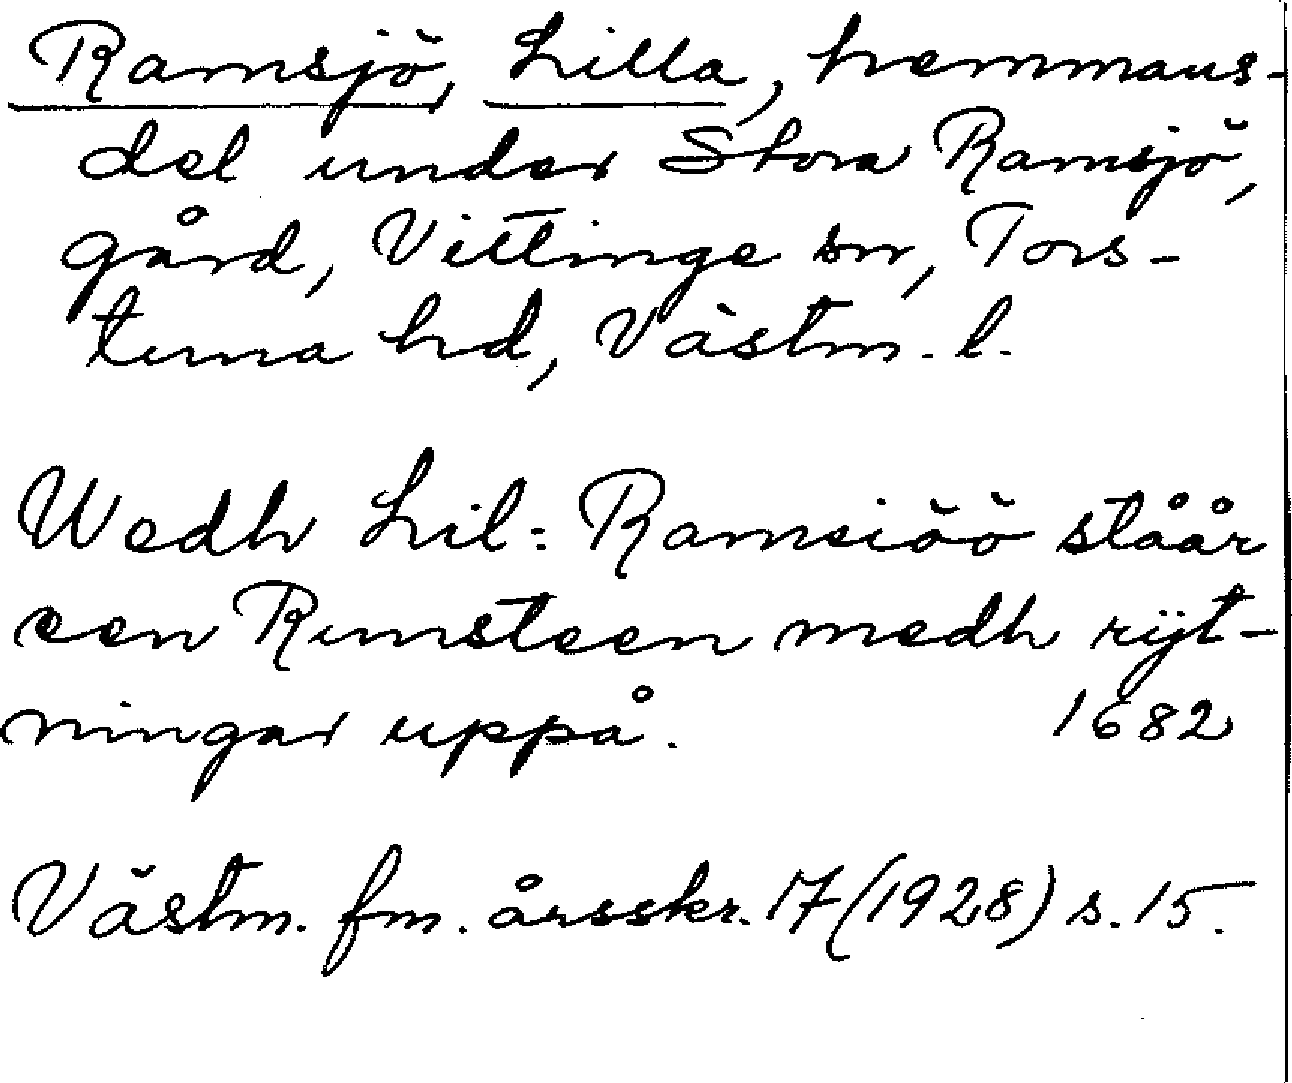 Ramsjö, Lilla, hemmans-
del under Stora Ramsjö,
gård, Vittinge sn, Tors-
tuna hd, Västm. l.
Wedh Lil: Ramsiöö ståår
een Runsteen medh rijt-
ningar uppå. 1682
Västm. fm. årsskr. 17 (1928) s. 15.